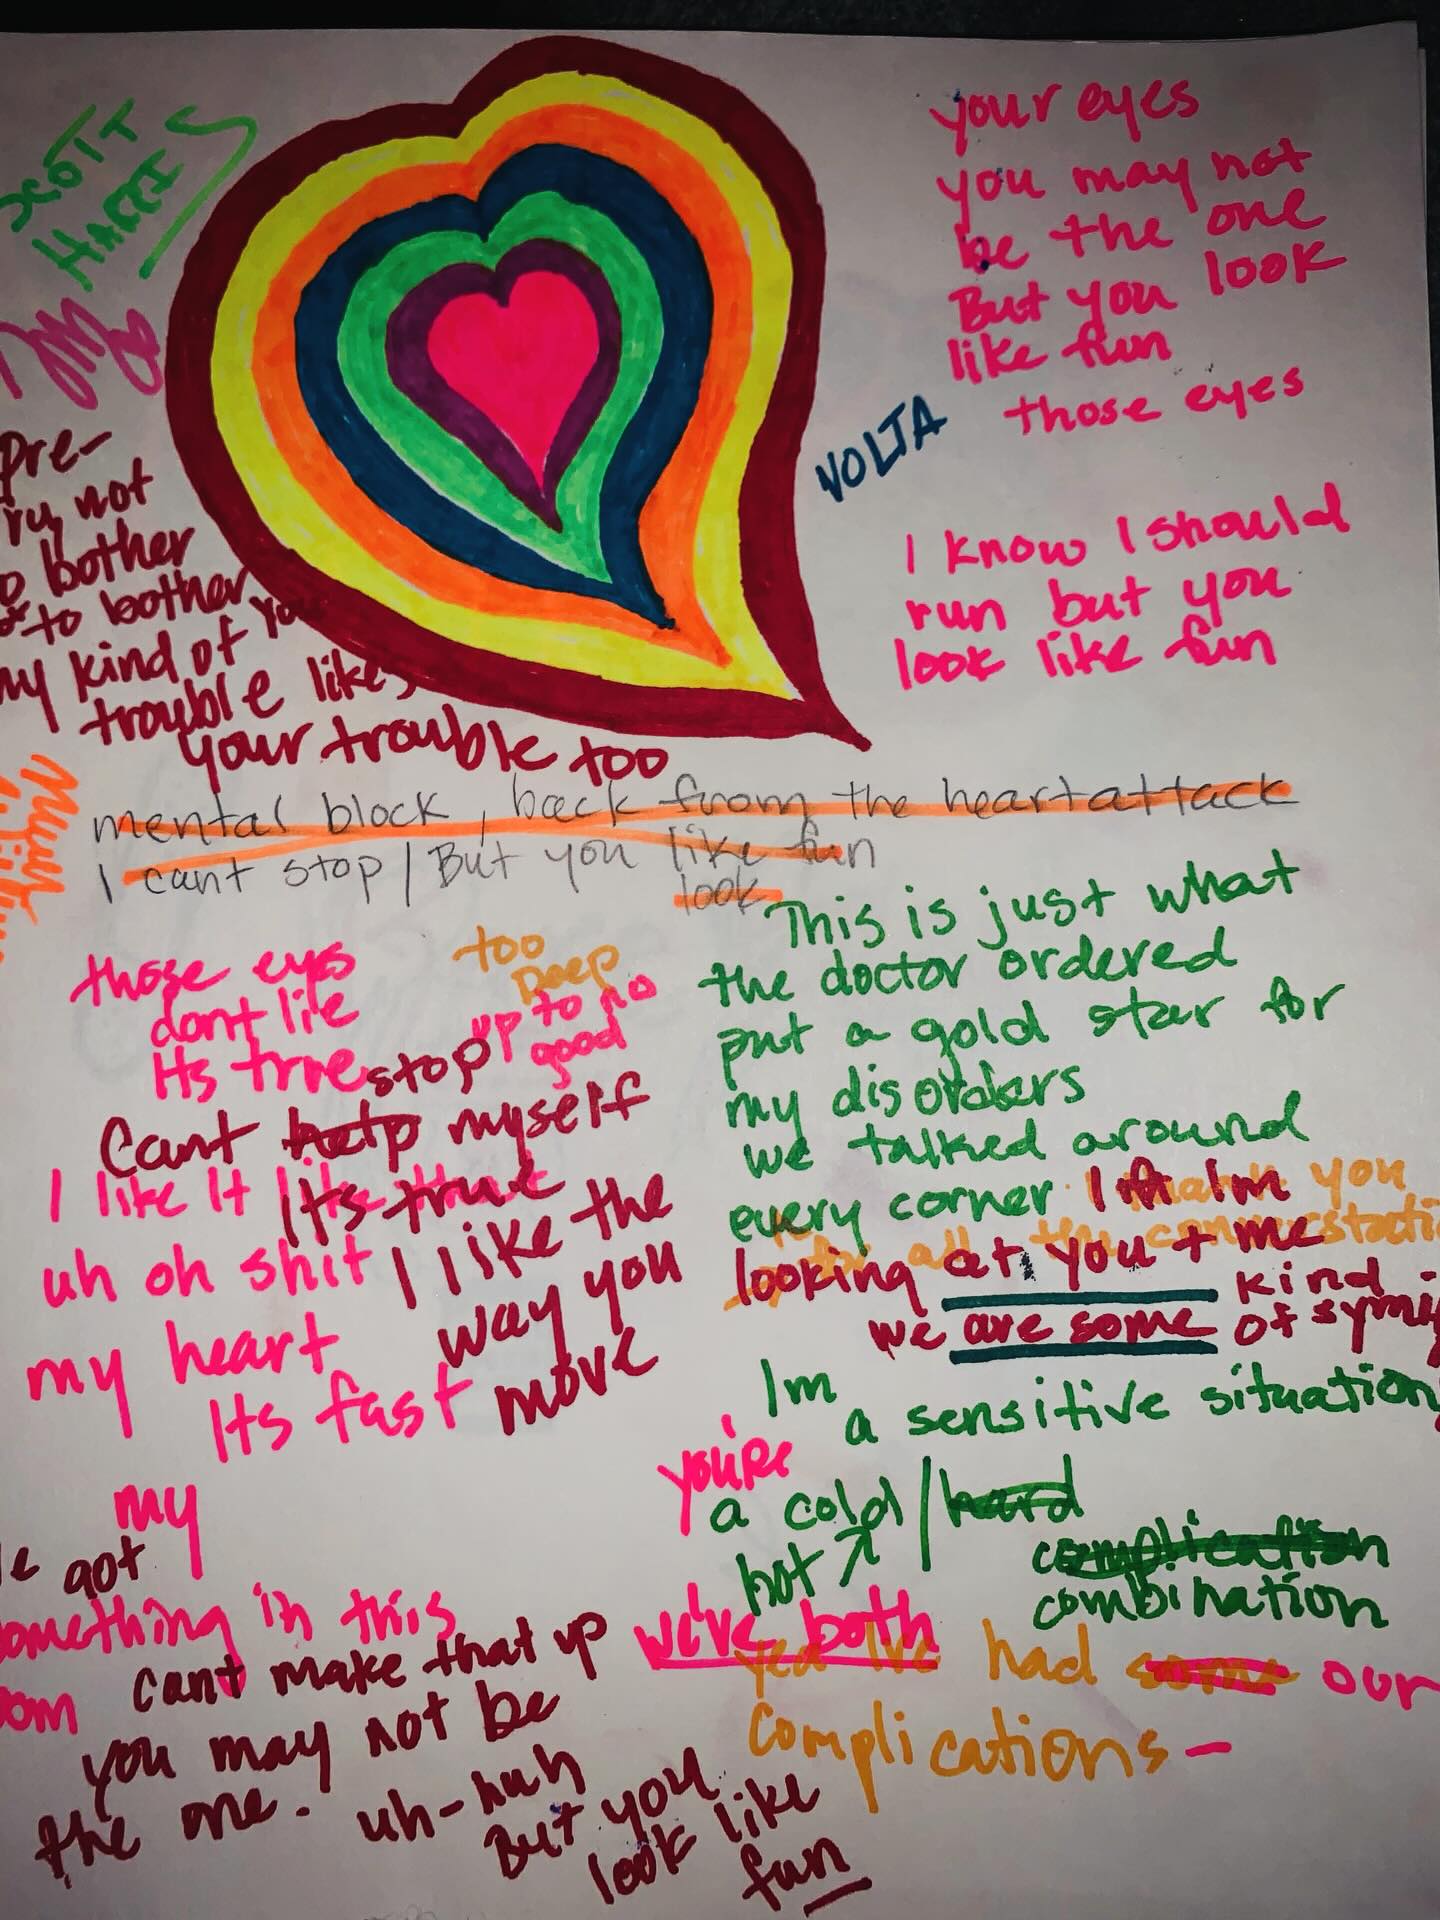 SCOTT
HARRIS
your eyes
you may not
be the one
But you look
like fun
those eyes
VOLTA
I know I should
run but you
look like fun
Pre-
not
bother
to bother
my kind of you
trouble likes
your trouble too
mental block, back from the heartattack
I cant stop / But you like fun
look
those eyes
dont lie
Its true
too
Deep
up to no
good
stop
Cant help myself
I like it like that
Its true
uh oh shit
I like the
way you
move
my heart
Its fast
my
got
something in this
cant make that up
you may not be
the one. uh-huh
But you
look like
fun
This is just what
the doctor ordered
put a gold star for
my disorders
we talked around
every corner
Im
looking at you + me
we are some kind
of
Im
a sensitive situation
you're
a cold / hard
hot
complication
combination
we've both
yea Ive had some our
complications-